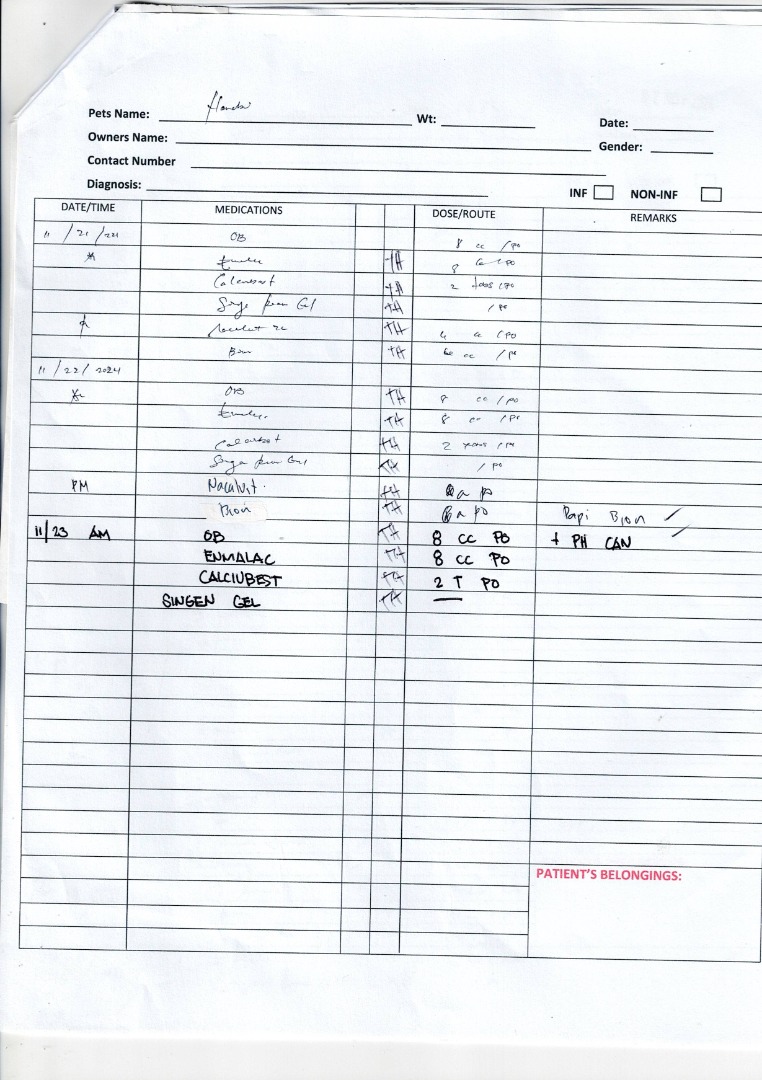 Pets Name: Wt: Date:
Owners Name: Gender:
Contact Number
Diagnosis: INF NON-INF
DATE/TIME MEDICATIONS DOSE/ROUTE REMARKS
11 / 21 / OB 8 cc / PO
TH 8 cc / PO
Calciubest TH 2 tabs / PO
Gel TH / PO
TH cc / PO
Bion TH cc / PO
11 / 22 / 2024
OB TH 8 cc / PO
TH 8 cc / PO
Calciubest TH 2 / PO
Gel TH / PO
PM Nacalvit. TH PO
Bion TH PO Papi Bion ✓
11/23 AM OB TH 8 CC PO + PH CAN ✓
ENMALAC TH 8 CC PO
CALCIUBEST TH 2 T PO
SINGEN GEL TH —
PATIENT'S BELONGINGS: